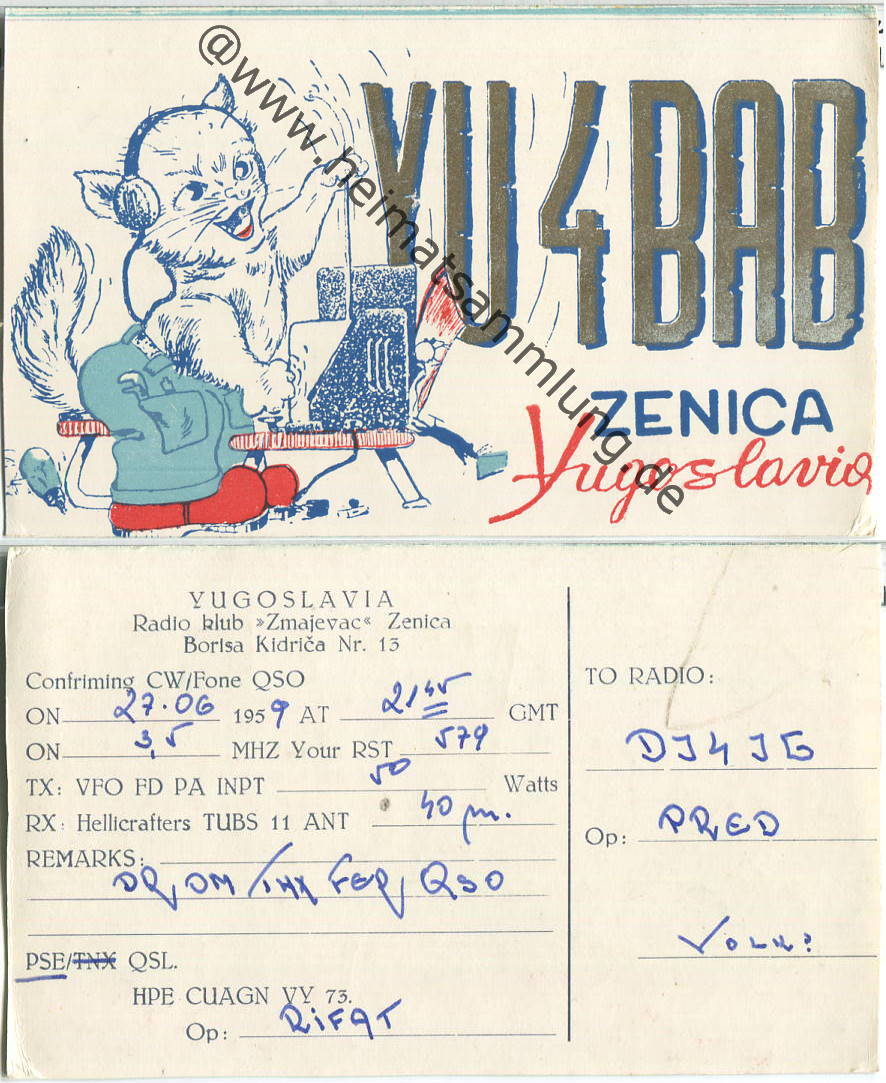 YU4BAB
ZENICA
Yugoslavia
@www.heimatsammlung.de
YUGOSLAVIA
Radio klub »Zmajevac« Zenica
Borisa Kidriča Nr. 13
Confriming CW/Fone QSO
ON 27.06 1959 AT 21 45 GMT
ON 3,5 MHZ Your RST 579
TX: VFO FD PA INPT 50 Watts
RX: Hellicrafters TUBS 11 ANT 40 m.
REMARKS:
DR OM / TNX FER QSO
PSE/TNX QSL.
HPE CUAGN VY 73.
Op: RIFAT
TO RADIO:
DJ4JG
Op: PRED